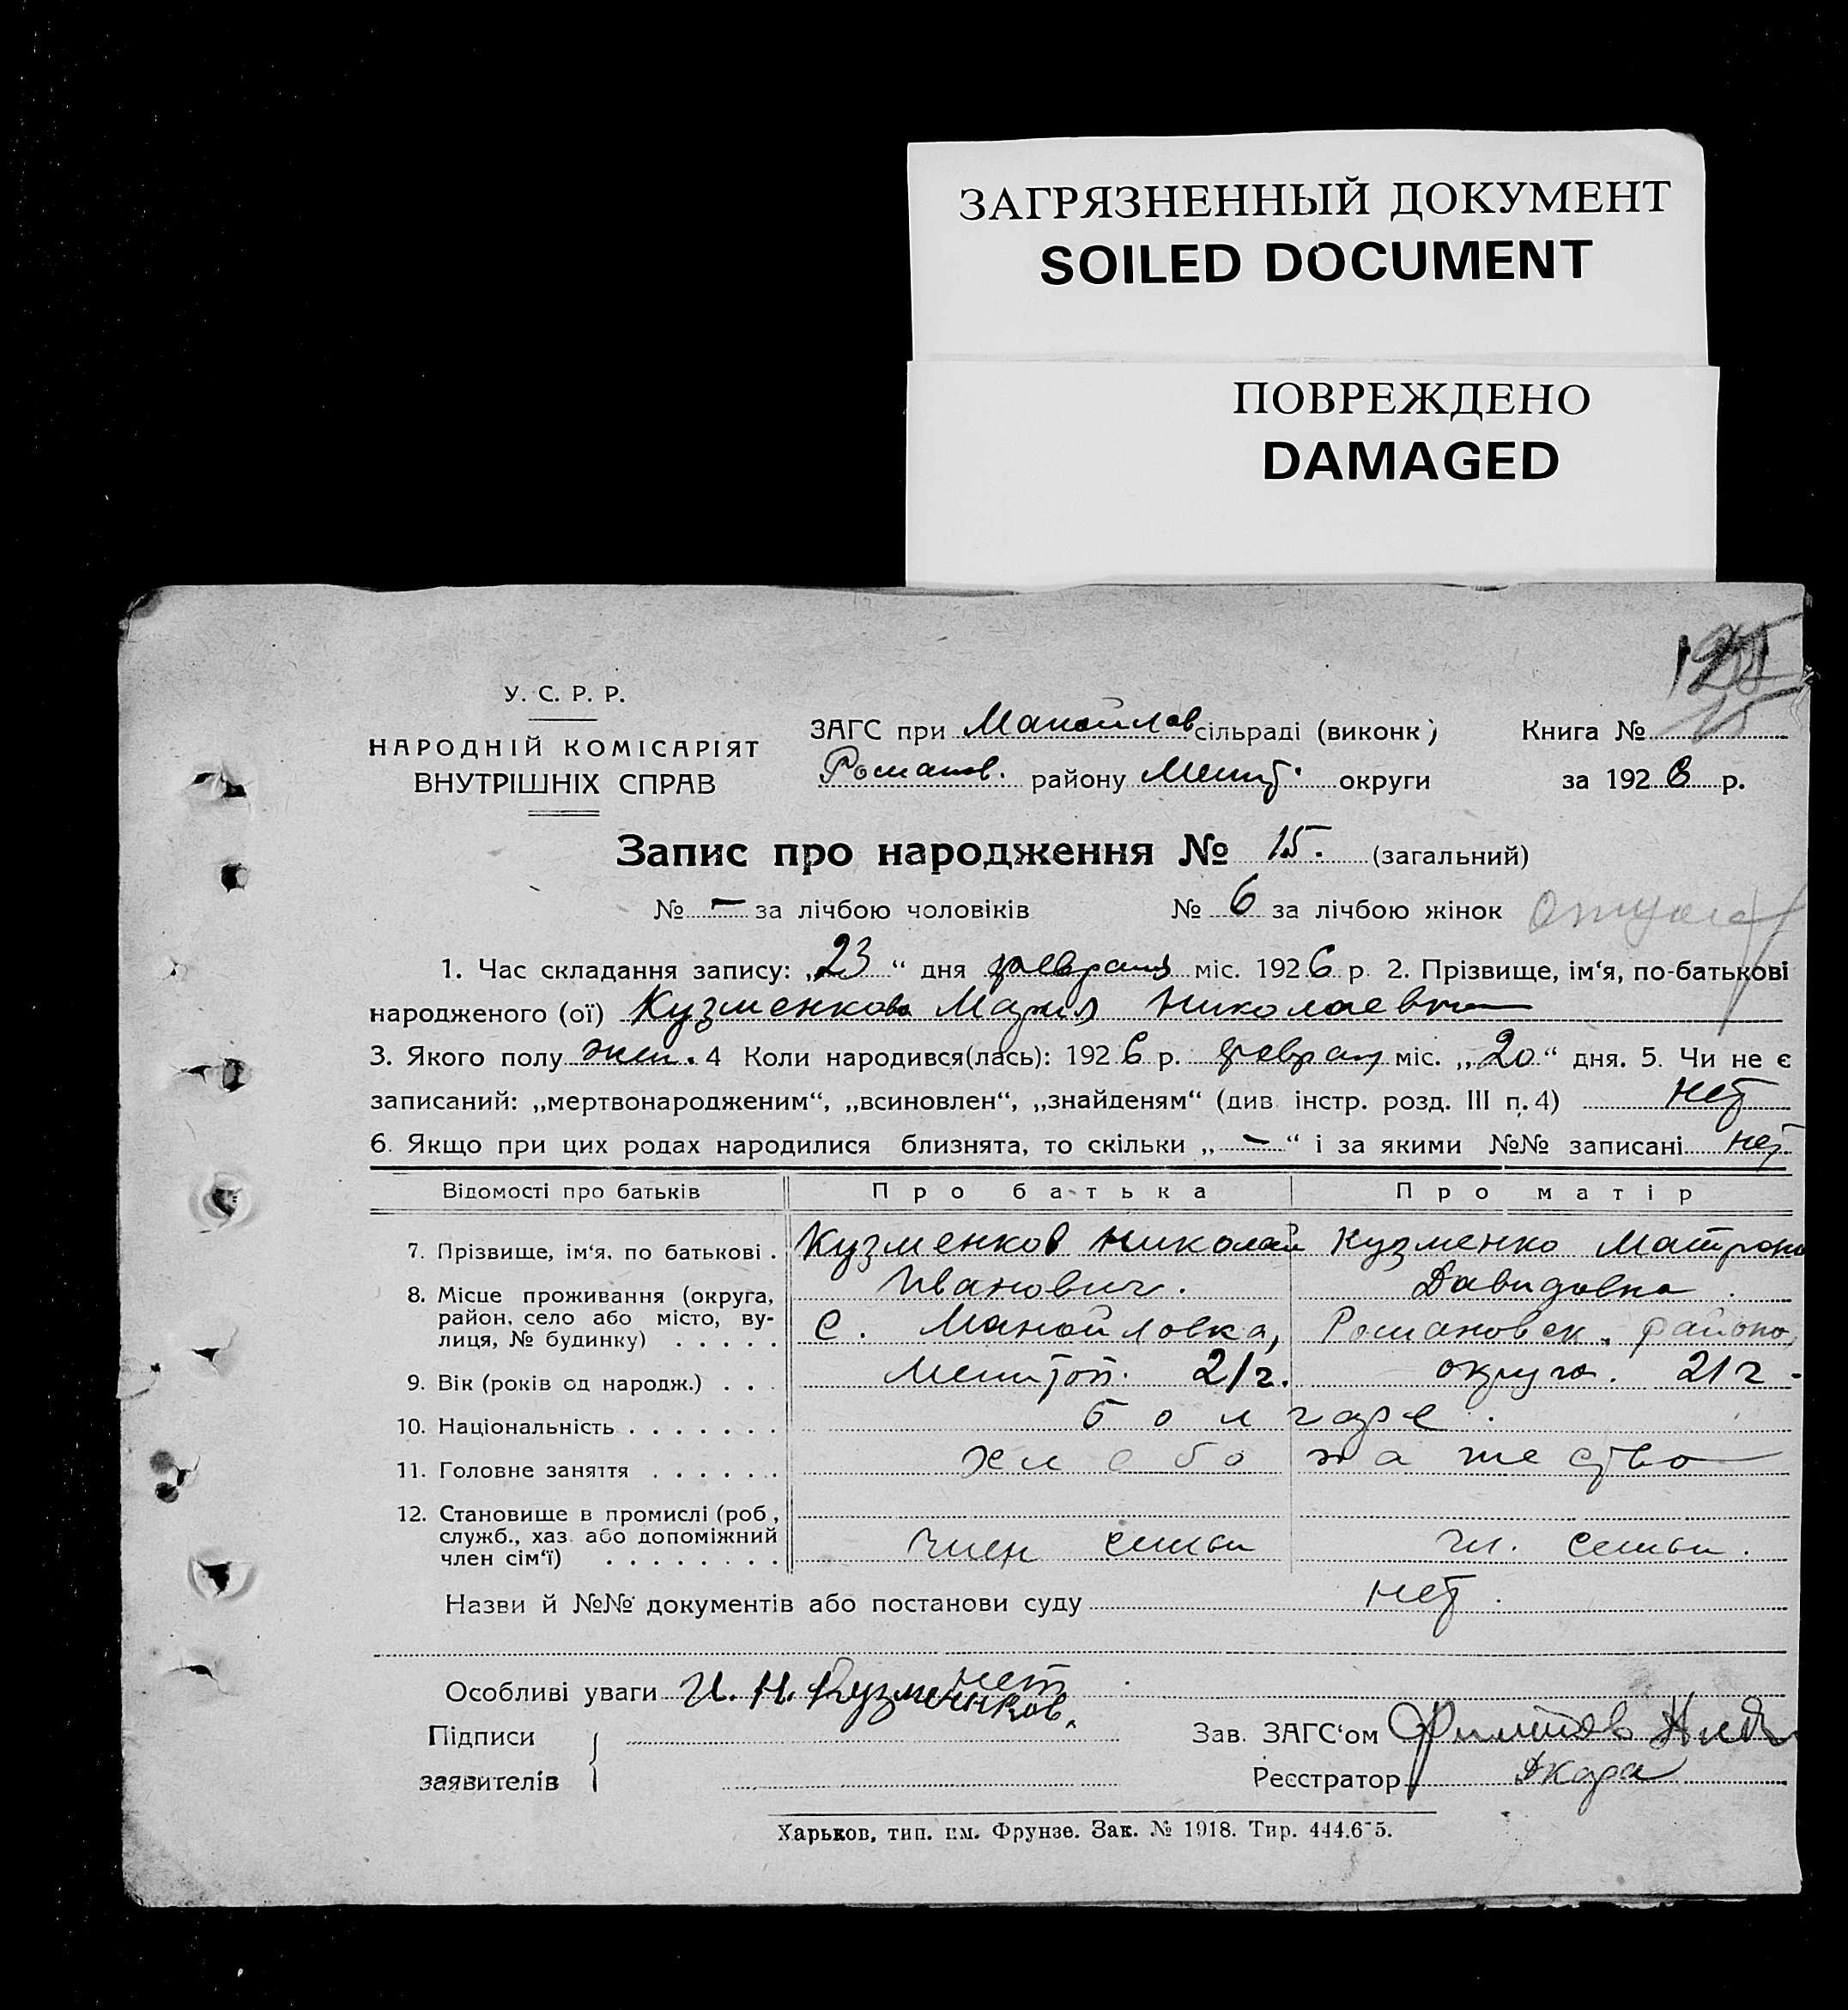 ЗАГРЯЗНЕННЫЙ ДОКУМЕНТ
SOILED DOCUMENT
ПОВРЕЖДЕНО
DAMAGED
У. С. Р. Р.
НАРОДНІЙ КОМІСАРІЯТ
ВНУТРІШНІХ СПРАВ
ЗАГС при Манойлов сільраді (виконк)
Книга №
Романов. району Мелит. округи
за 1926 р.
Запис про народження № 15. (загальний)
№ — за лічбою чоловіків № 6 за лічбою жінок
1. Час складання запису: „23“ дня февраля міс. 1926 р. 2. Прізвище, ім‘я, по-батькові
народженого (ої) Кузменкова Мария Николаевна
3. Якого полу жен. 4 Коли народився(лась): 1926 р. февраля міс. „20“ дня. 5. Чи не є
записаний: „мертвонародженим“, „всиновлен“, „знайденям“ (див. інстр. розд. III п. 4) нет
6. Якщо при цих родах народилися близнята, то скільки „—“ і за якими №№ записані нет
Відомості про батьків Про батька Про матір
7. Прізвище, ім‘я, по батькові . Кузменков Николай Кузменко Матрона
Иванович. Давидовна.
8. Місце проживання (округа,
район, село або місто, ву-
лиця, № будинку) . . . . . с. Манойловка, Романовск. района,
9. Вік (років од народж.) . . . Мелитоп. 21 г. округа. 21 г.
10. Національність . . . . . . . болгаре.
11. Головне заняття . . . . . . хлебопашество
12. Становище в промислі (роб,
служб., хаз. або допоміжний
член сім‘ї) . . . . . . . . член семьи чл. семьи.
Назви й №№ документів або постанови суду нет.
Особливі уваги нет
И. Н. Кузменнков.
Підписи
заявителів
Зав. ЗАГС‘ом
Реєстратор
Харьков, тип. им. Фрунзе. Зак. № 1918. Тир.